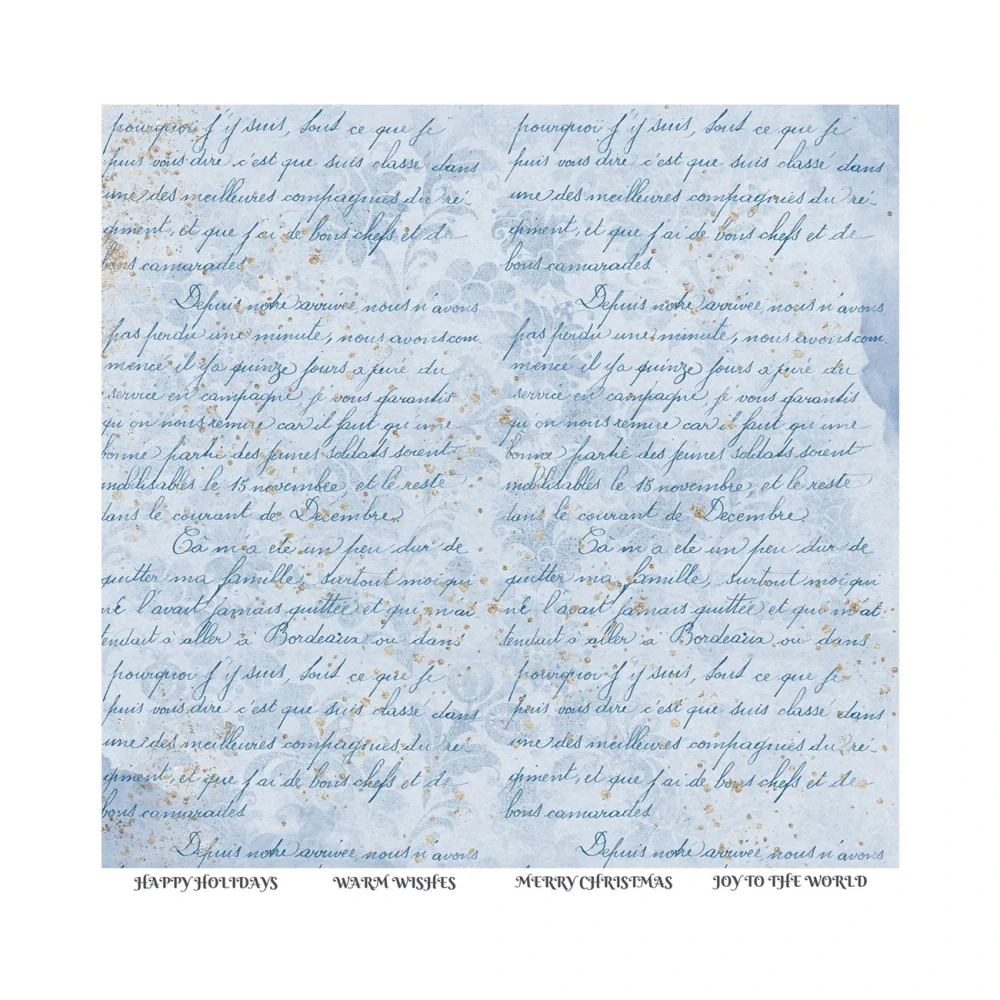 pourquoi j'y suis, tout ce que je pourquoi j'y suis, tout ce que je
puis vous dire c'est que suis classé dans puis vous dire c'est que suis classé dans
une des meilleures compagnies du ré- une des meilleures compagnies du ré-
giment, et que j'ai de bons chefs et de giment, et que j'ai de bons chefs et de
bons camarades bons camarades
Depuis notre arrivée nous n'avons Depuis notre arrivée nous n'avons
pas perdu une minute, nous avons com. pas perdu une minute, nous avons com.
mencé il y a quinze jours a faire du mencé il y a quinze jours a faire du
service en campagne, je vous garantis service en campagne, je vous garantis
qu'on nous remue car il faut qu'une qu'on nous remue car il faut qu'une
bonne partie des jeunes soldats soient bonne partie des jeunes soldats soient
mobilisables le 15 novembre, et le reste mobilisables le 15 novembre, et le reste
dans le courant de Décembre. dans le courant de Decembre.
Cà m'a été un peu dur de Cà m'a ete un peu dur de
quitter ma famille, surtout moi qui quitter ma famille, surtout moi qui
né l'avait jamais quittée et qui m'at né l'avait jamais quittée et qui m'at-
tendait à aller à Bordeaux ou dans tendait à aller à Bordeaux ou dans
pourquoi j'y suis, tout ce que je pourquoi j'y suis, tout ce que je
puis vous dire c'est que suis classé dans puis vous dire c'est que suis classé dans
une des meilleures compagnies du ré- une des meilleures compagnies du ré-
giment, et que j'ai de bons chefs et de giment, et que j'ai de bons chefs et de
bons camarades bons camarades
Depuis notre arrivée nous n'avons Depuis notre arrivée nous n'avons
HAPPY HOLIDAYS WARM WISHES MERRY CHRISTMAS JOY TO THE WORLD